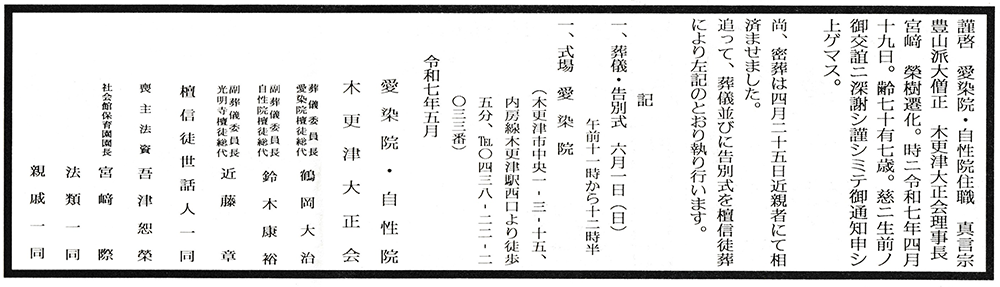 謹啓　愛染院・自性院住職　真言宗
豊山派大僧正　木更津大正会理事長
宮﨑　榮樹遷化。時ニ令和七年四月
十九日。齢七十有七歳。茲ニ生前ノ
御交誼ニ深謝シ謹シミテ御通知申シ
上ゲマス。
尚、密葬は四月二十五日近親者にて相
済ませました。
追って、葬儀並びに告別式を檀信徒葬
により左記のとおり執り行います。
記
一、葬儀・告別式　六月一日（日）
午前十一時から十二時半
一、式場　愛染院
（木更津市中央一-三-十五、
内房線木更津駅西口より徒歩
五分、℡〇四三八-二二-二
〇三三番）
令和七年五月
愛染院・自性院
木更津大正会
葬儀委員長
愛染院檀徒総代　鶴岡大治
副葬儀委員長
自性院檀徒総代　鈴木康裕
副葬儀委員長
光明寺檀徒総代　近藤　章
檀信徒世話人一同
喪主法資　吾津恕榮
社会館保育園園長　宮﨑　際
法類一同
親戚一同